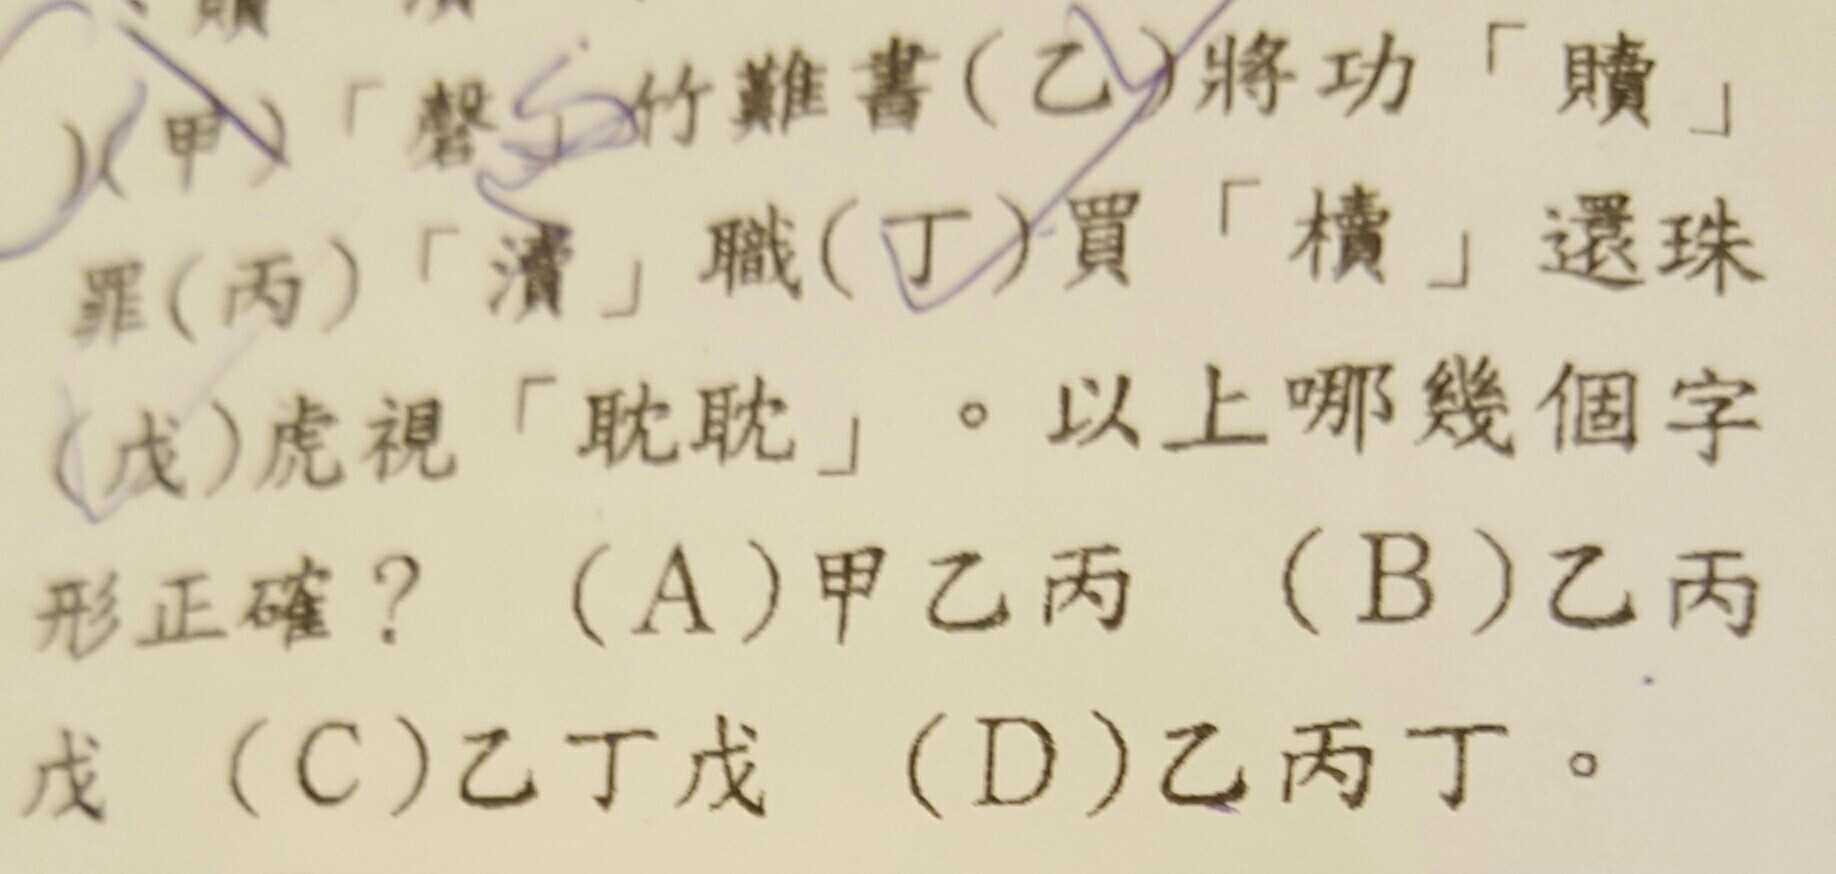 )(甲)「磬」竹難書(乙)將功「贖」
罪(丙)「瀆」職(丁)買「櫝」還珠
(戊)虎視「耽耽」。以上哪幾個字
形正確？ (A)甲乙丙 (B)乙丙
戊 (C)乙丁戊 (D)乙丙丁。